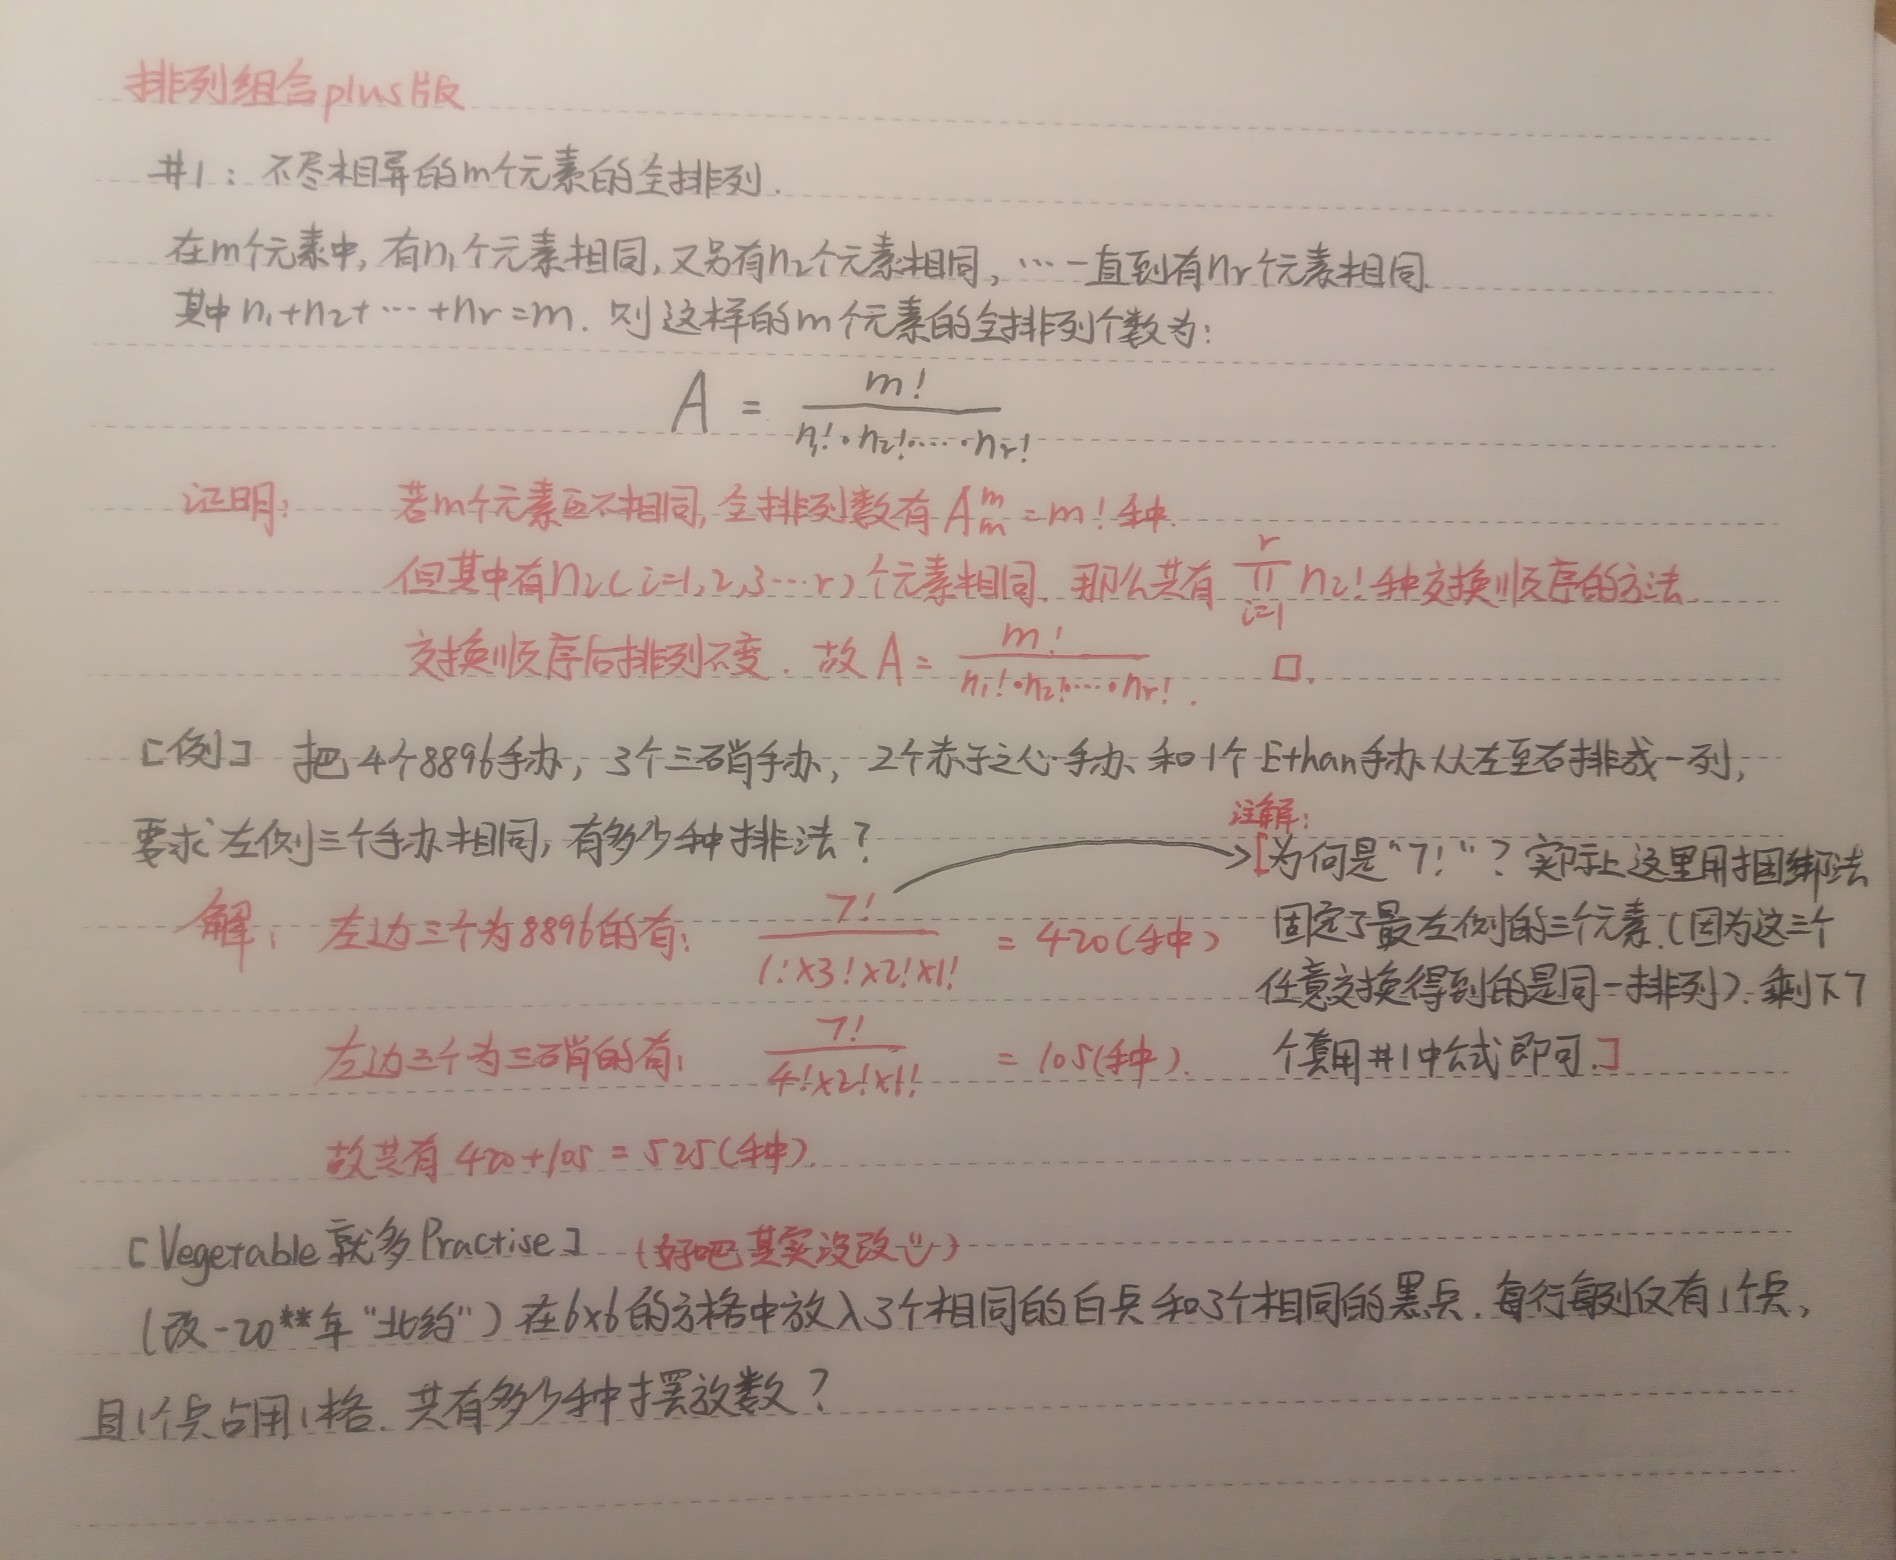 排列组合plus版
#1：不尽相异的m个元素的全排列.
在m个元素中, 有n₁个元素相同, 又另有n₂个元素相同, …一直到有nᵣ个元素相同.
其中 n₁+n₂+…+nᵣ=m. 则这样的m个元素的全排列个数为:
A = m! / (n₁!·n₂!·…·nᵣ!)
证明: 若m个元素互不相同, 全排列数有 Aₘᵐ=m! 种.
但其中有nᵢ(i=1,2,3…r)个元素相同. 那么共有 ∏ᵢ₌₁ʳ nᵢ! 种交换顺序的方法.
交换顺序后排列不变. 故 A = m! / (n₁!·n₂!·…·nᵣ!). □.
[例] 把4个8896手办, 3个三硝手办, 2个赤子之心手办和1个Ethan手办从左至右排成一列,
要求左侧三个手办相同, 有多少种排法?
解: 左边三个为8896的有: 7! / (1!×3!×2!×1!) = 420(种)
左边三个为三硝的有: 7! / (4!×2!×1!) = 105(种).
故共有 420+105 = 525(种).
注解:
[为何是"7!"? 实际上这里用捆绑法
固定了最左侧的三个元素.(因为这三个
任意交换得到的是同一排列). 剩下7
个套用#1中公式即可.]
[Vegetable就多Practise] (好吧其实没改)
(改-20**年"北约") 在6×6的方格中放入3个相同的白兵和3个相同的黑兵. 每行每列仅有1个兵,
且1个兵占用1格. 共有多少种摆放数?